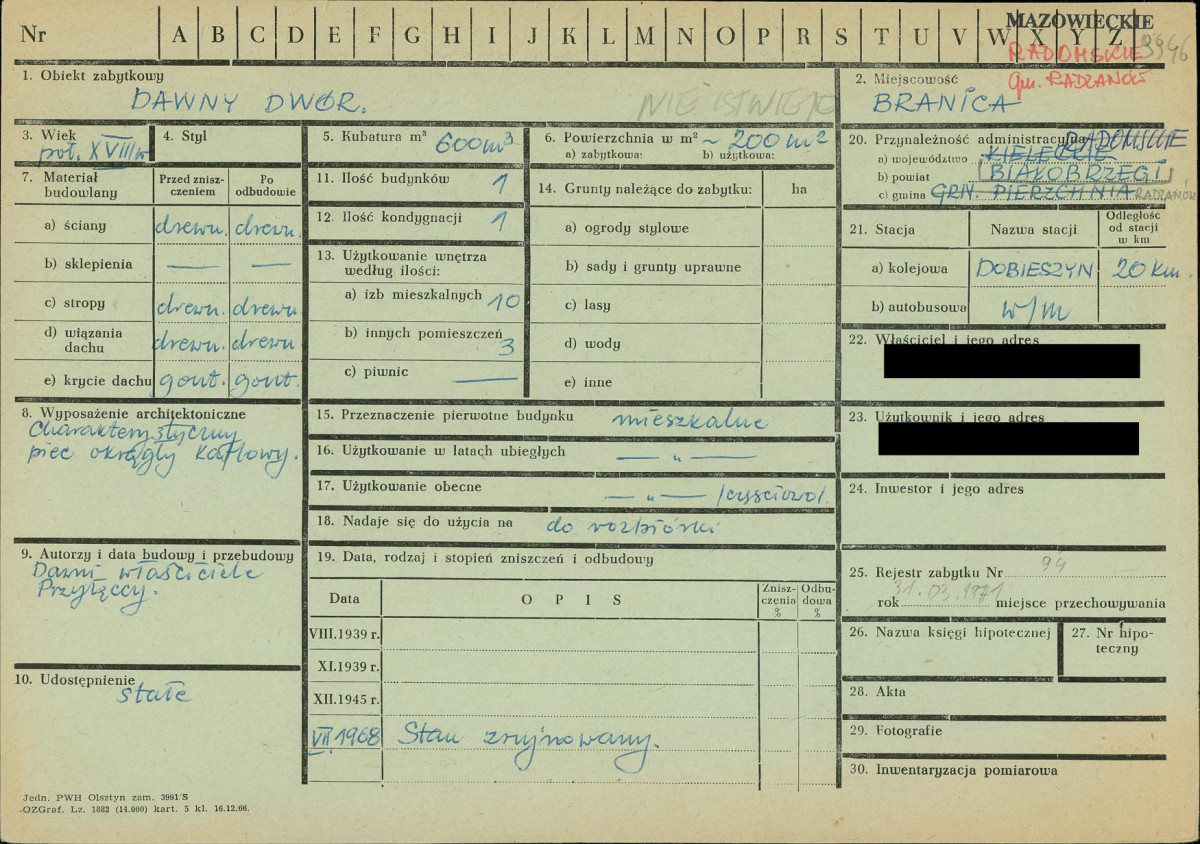 MAZOWIECKIE
Nr A B C D E F G H I J K L M N O P R S T U V W X Y Z 9946
RADOMSKIE
gm. RADZANÓW
1. Obiekt zabytkowy
DAWNY DWÓR.
NIE ISTNIEJE
2. Miejscowość
BRANICA
3. Wiek
poł. XVIII w
4. Styl
5. Kubatura m³ 600 m³
6. Powierzchnia w m² ~ 200 m²
a) zabytkowa: b) użytkowa:
7. Materiał budowlany
Przed zniszczeniem
Po odbudowie
a) ściany drewn. drewn.
b) sklepienia — —
c) stropy drewn. drewn.
d) wiązania dachu drewn. drewn
e) krycie dachu gont. gont.
8. Wyposażenie architektoniczne
Charakterystyczny
piec okrągły kaflowy.
9. Autorzy i data budowy i przebudowy
Dawni właściciele
Przyłęccy.
10. Udostępnienie
stałe
11. Ilość budynków 1
12. Ilość kondygnacji 1
13. Użytkowanie wnętrza
według ilości:
a) izb mieszkalnych 10
b) innych pomieszczeń 3
c) piwnic —
14. Grunty należące do zabytku: ha
a) ogrody stylowe
b) sady i grunty uprawne
c) lasy
d) wody
e) inne
15. Przeznaczenie pierwotne budynku mieszkalne
16. Użytkowanie w latach ubiegłych — „ —
17. Użytkowanie obecne — „ — /częściowo/.
18. Nadaje się do użycia na do rozbiórki
19. Data, rodzaj i stopień zniszczeń i odbudowy
Data
OPIS
Zniszczenia %
Odbudowa %
VIII.1939 r.
XI.1939 r.
XII.1945 r.
VII 1968 Stan zrujnowany.
20. Przynależność administracyjna RADOMSKIE
a) województwo KIELECKIE
b) powiat BIAŁOBRZEGI
c) gmina GRN. PIERZCHNIA RADZANÓW
21. Stacja
Nazwa stacji
Odległość od stacji w km
a) kolejowa DOBIESZYN 20 km.
b) autobusowa w/m
22. Właściciel i jego adres
23. Użytkownik i jego adres
24. Inwestor i jego adres
25. Rejestr zabytku Nr 94
rok 31.03.1971 miejsce przechowywania
26. Nazwa księgi hipotecznej
27. Nr hipoteczny
28. Akta
29. Fotografie
30. Inwentaryzacja pomiarowa
Jedn. PWH Olsztyn zam. 3991/S
-OZGraf. Lz. 1882 (14.000) kart. 5 kl. 16.12.66.